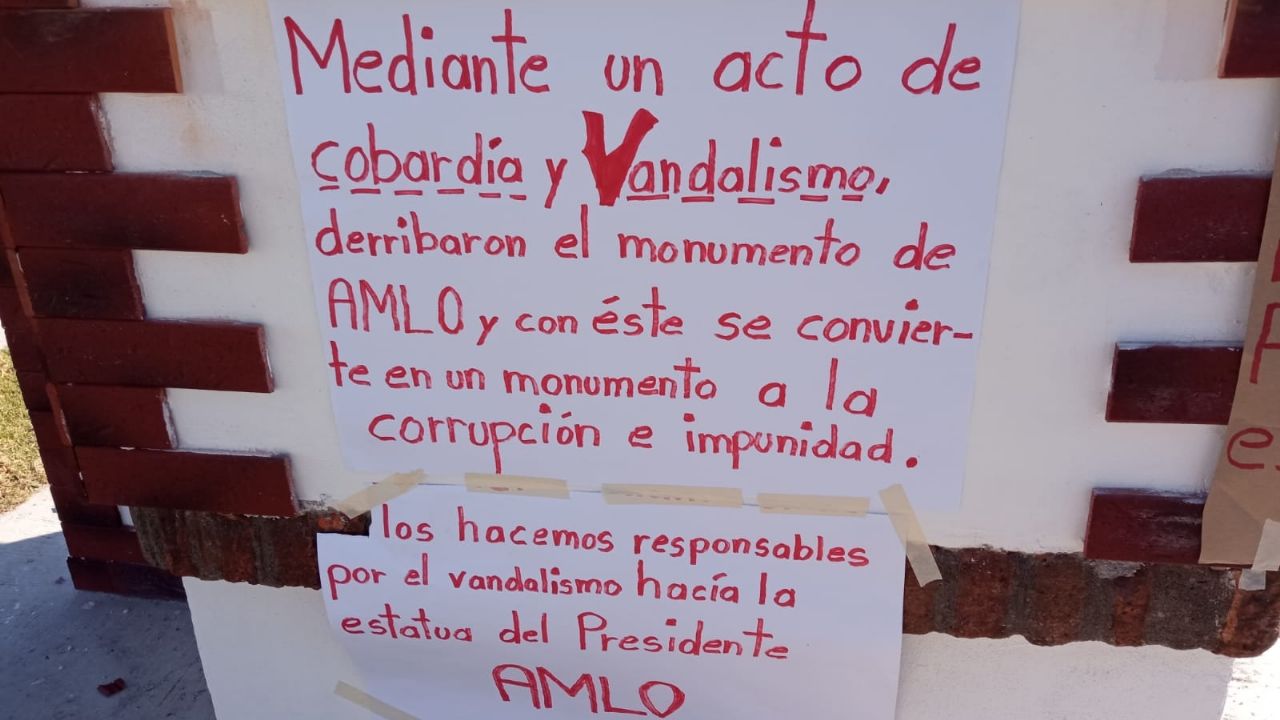 Mediante un acto de
cobardía y Vandalismo,
derribaron el monumento de
AMLO y con éste se convier-
te en un monumento a la
corrupción e impunidad.
los hacemos responsables
por el vandalismo hacía la
estatua del Presidente
AMLO